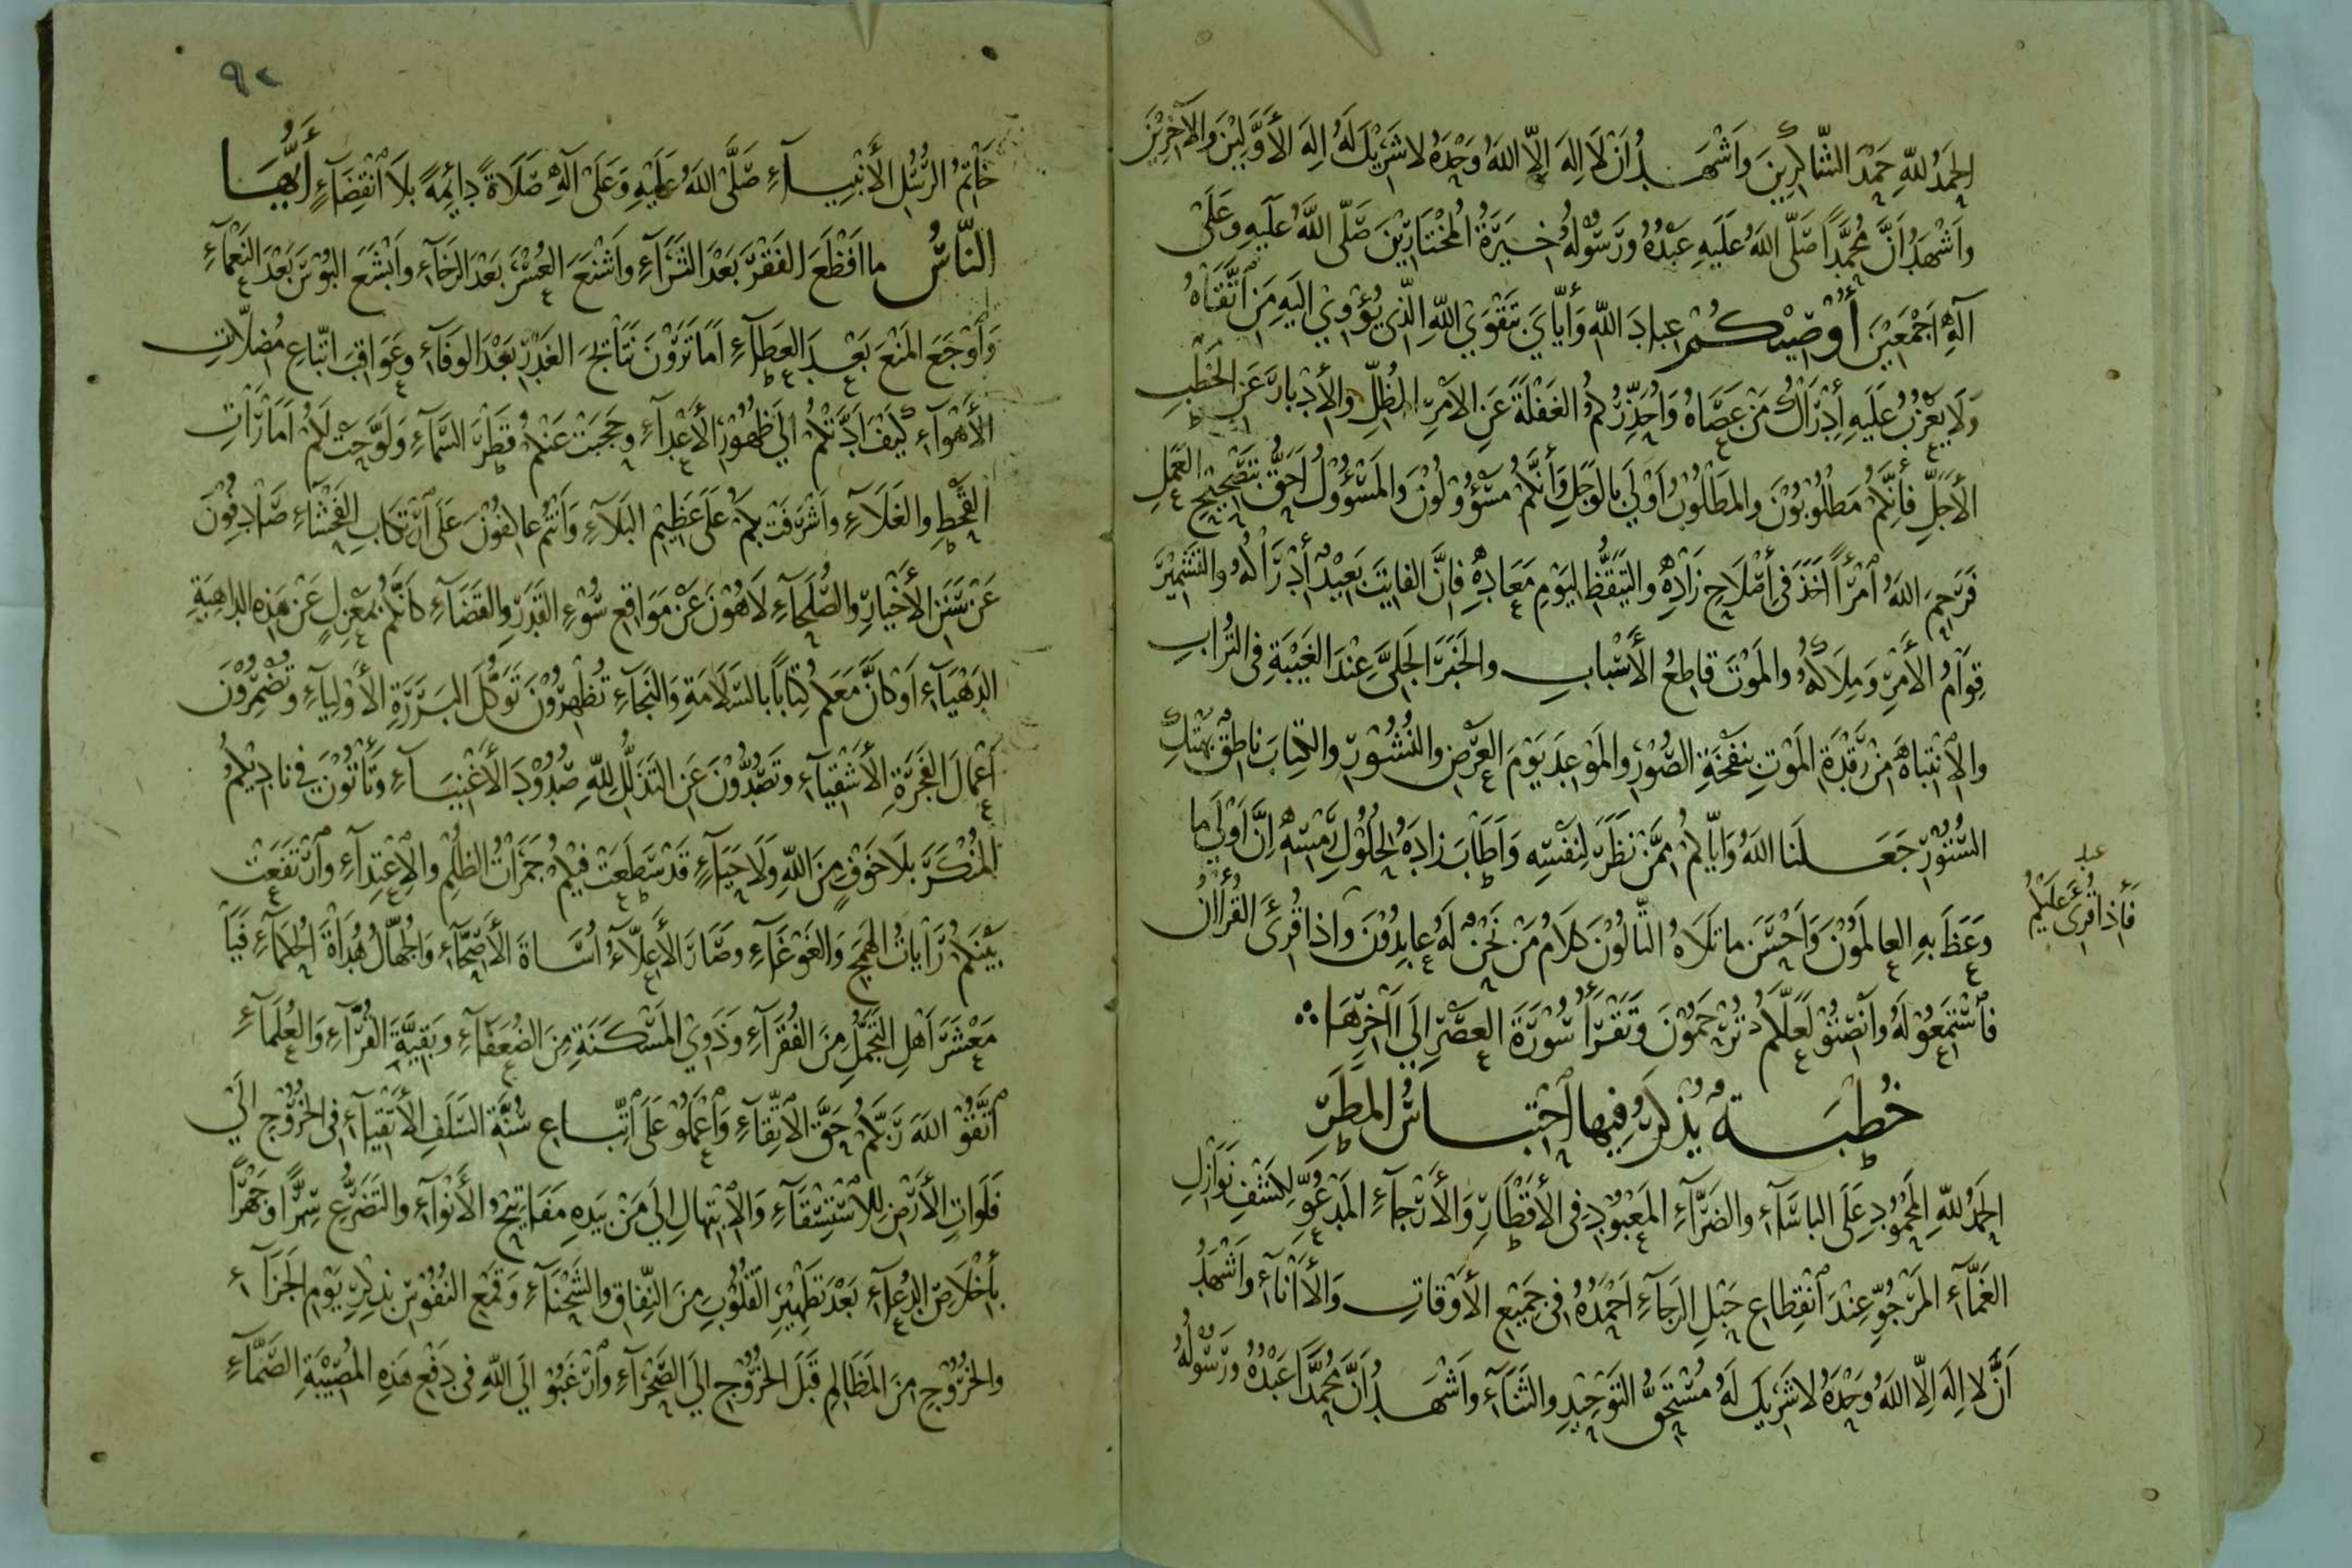 الحَمْدُ لِلّهِ حَمْدَ الشَّاكِرِينَ وَاَشْهَدُ اَنْ لَا اِلهَ اِلّا اللهُ وَحْدَهُ لا شَرِيْكَ لَهُ اِلهَ الأَوَّلِيْنَ وَالآخِرِيْنَ
وَاَشْهَدُ اَنَّ مُحَمَّدًا صَلَّى اللهُ عَلَيْهِ عَبْدُهُ وَرَسُوْلُهُ خِيَرَةُ المُخْتَارِيْنَ صَلَّى اللهُ عَلَيْهِ وَعَلَى
آلِهِ اَجْمَعِيْنَ أُوْصِيْكُمْ عِبادَ اللهِ وَاِيَّايَ بِتَقْوَي اللهِ الَّذِي يُؤْوِيْ اِلَيْهِ مَنِ اتَّقَاهُ
وَلَا يَعْزُبُ عَلَيْهِ اِدْرَاكُ مَنْ عَصَاهُ وَاُحَذِّرُكُمُ الغَفْلَةَ عَنِ الاَمْرِ المُظِلِّ وَالأِدْبارَ عَنِ الخَطْبِ
الأَجَلِّ فَاِنَّكُمْ مَطْلُوْبُوْنَ وَالمَطْلُوْبُ اَوْلَى بِالوَجَلِ وَاَنَّكُمْ مَسْؤُوْلُوْنَ وَالمَسْؤُوْلُ اَحَقُّ بِتَصْحِيْحِ العَمَلِ
فَرَحِمَ اللهُ امْرَأً اَخَذَ فِي اِصْلَاحِ زَادِهِ وَالتَّيَقُّظِ لِيَوْمِ مَعَادِهِ فَاِنَّ الفَايِتَ بَعِيْدٌ اِدْرَاكُهُ وَالتَّشْمِيْرَ
قِوَامُ الأَمْرِ وَمِلَاكُهُ وَالمَوْتَ قَاطِعُ الأَسْبابِ وَالخَبَرَ الجَلِيَّ عِنْدَ الغَيْبَةِ فِي التُّرَابِ
وَالاِنْتِباهَ مِنْ رَقْدَةِ المَوْتِ بِنَفْخَةِ الصُّوْرِ وَالمَوْعِدَ يَوْمَ العَرْضِ وَالنُّشُوْرِ وَالكِتَابَ نَاطِقٌ بِهَتْكِ
السُّتُوْرِ جَعَلَنَا اللهُ وَاِيَّاكُمْ مِمَّنْ نَظَرَ لِنَفْسِهِ وَاَطَابَ زادَهُ لِحُلُوْلِ رَمْسِهِ اِنَّ اَوْلَى ما
وَعَظَ بِهِ العالِمُوْنَ وَاَحْسَنَ ما تَلَاهُ التّالُوْنَ كَلَامُ مَنْ نَحْنُ لَهُ عابِدُوْنَ وَاِذا قُرِئَ القُرْاٰنُ
فَاسْتَمِعُوْا لَهُ وَاَنْصِتُوْا لَعَلَّكُمْ تُرْحَمُوْنَ وَتَقْرَأُ سُوْرَةَ العَصْرِ اِلَى آخِرِهَا
خُطْبَةٌ يُذْكَرُ فِيها احْتِباسُ المَطَرِ
الحَمْدُ لِلّهِ المَحْمُوْدِ عَلَى البَاسَآءِ وَالضَّرَّآءِ المَعْبُوْدِ فِي الأَقْطَارِ وَالأَرْجَآءِ المَدْعُوِّ لِكَشْفِ نَوَازِلِ
الغَمَّآءِ المَرْجُوِّ عِنْدَ انْقِطاعِ حَبْلِ الرَّجآءِ اَحْمَدُهُ فِي جَمِيْعِ الأَوْقَاتِ وَالاَآنَآءِ وَاَشْهَدُ
اَنْ لا اِلهَ اِلّا اللهُ وَحْدَهُ لا شَرِيْكَ لَهُ مُسْتَحِقُّ التَّوْحِيْدِ وَالثَّنَآءِ وَاَشْهَدُ اَنَّ مُحَمَّدًا عَبْدُهُ وَرَسُوْلُهُ
فَاِذا قُرِئَ عَلَيْكُمْ
٩٢
خَاتِمُ الرُّسُلِ الأَنْبِيآءِ صَلَّى اللهُ عَلَيْهِ وَعَلَى آلِهِ صَلَاةً دَائِمَةً بِلَا انْقِضَآءٍ أَيُّهَا
النَّاسُ ما اَفْظَعَ الفَقْرَ بَعْدَ الثَّرَآءِ وَاَشْنَعَ العُسْرَ بَعْدَ الرَّخَآءِ وَاَبْشَعَ البُؤْسَ بَعْدَ النَّعْمَآءِ
وَاَوْجَعَ المَنْعَ بَعْدَ العَطَآءِ اَمَا تَرَوْنَ نَتَائِجَ الغَدْرِ بَعْدَ الوَفَآءِ وَعَوَاقِبَ اتِّباعِ مُضِلَّاتِ
الأَهْوَآءِ كَيْفَ اَدَّتْكُمْ اِلَى ظُهُوْرِ الأَعْدَآءِ وَحَجَبَتْ عَنْكُمْ قَطْرَ السَّمَآءِ وَلَوَّحَتْ لَكُمْ اَمَارَاتِ
القَحْطِ وَالغَلَآءِ وَاَشْرَفَتْ بِكُمْ عَلَى عَظِيْمِ البَلَآءِ وَاَنْتُمْ عَاكِفُوْنَ عَلَى ارْتِكَابِ الفَحْشَآءِ صَادِفُوْنَ
عَنْ سَنَنِ الأَخْيَارِ وَالصُّلَحَآءِ لَاهُوْنَ عَنْ مَوَاقِعِ سُوْءِ القَدَرِ وَالقَضَآءِ كَاَنَّكُمْ بِمَعْزِلٍ عَنْ هَذِهِ الدَّاهِيَةِ
الدَّهْيَآءِ اَوْ كَاَنَّ مَعَكُمْ كِتَابًا بِالسَّلَامَةِ وَالنَّجَآءِ تُظْهِرُوْنَ تَوَكُّلَ البَرَرَةِ الأَوْلِيَآءِ وَتُضْمِرُوْنَ
اَعْمَالَ الفَجَرَةِ الأَشْقِيَآءِ وَتَصُدُّوْنَ عَنِ التَّذَلُّلِ لِلّهِ صُدُوْدَ الأَغْنِيَآءِ وَتَأْتُوْنَ فِي نَادِيْكُمُ
المُنْكَرَ بِلَا خَوْفٍ مِنَ اللهِ وَلَا حَيَآءٍ قَدْ سَطَعَتْ فِيْكُمْ جَمَرَاتُ الظُّلْمِ وَالاِعْتِدَآءِ وَارْتَفَعَتْ
بَيْنَكُمْ رَايَاتُ الهَمَجِ وَالغَوْغَآءِ وَصَارَ الأَعِلَّآءُ اُسَاةَ الأَصِحَّآءِ وَالجُهَّالُ هُدَاةَ الحُكَمَآءِ فَيَا
مَعْشَرَ اَهْلِ التَّجَمُّلِ مِنَ الفُقَرَآءِ وَذَوِي المَسْكَنَةِ مِنَ الضُّعَفَآءِ وَبَقِيَّةَ القُرَّآءِ وَالعُلَمَآءِ
اتَّقُوا اللهَ رَبَّكُمْ حَقَّ الاِتِّقَآءِ وَاعْمَلُوْا عَلَى اتِّباعِ سُنَّةِ السَّلَفِ الأَتْقِيَآءِ فِي الخُرُوْجِ اِلَى
فَلَوَاتِ الأَرْضِ لِلاسْتِسْقَآءِ وَالاِبْتِهَالِ اِلَى مَنْ بِيَدِهِ مَفَاتِيْحُ الأَنْوَآءِ وَالتَّضَرُّعِ سِرًّا وَجَهْرًا
بِاِخْلَاصِ الدُّعَآءِ بَعْدَ تَطْهِيْرِ القُلُوْبِ مِنَ النِّفَاقِ وَالشَّحْنَآءِ وَقَمْعِ النُّفُوْسِ بِذِكْرِ يَوْمِ الجَزَآءِ
وَالخُرُوْجِ مِنَ المَظَالِمِ قَبْلَ الخُرُوْجِ اِلَى الصَّحْرَآءِ وَارْغَبُوْا اِلَى اللهِ فِي دَفْعِ هَذِهِ المُصِيْبَةِ الصَّمَّآءِ